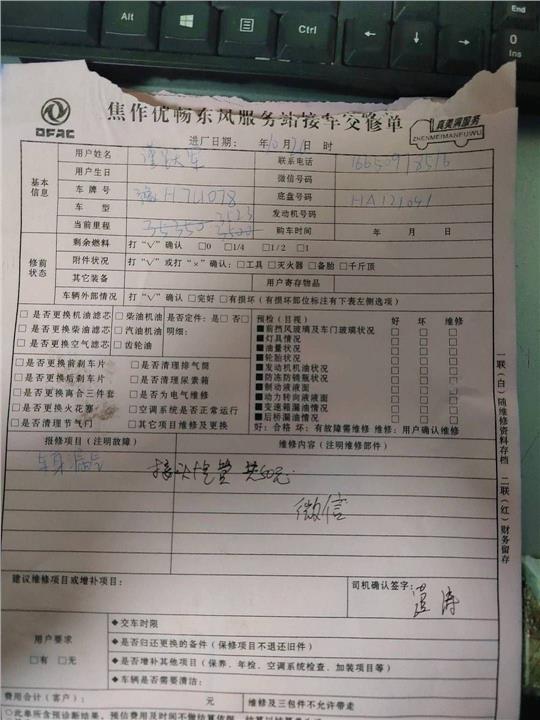 End
0
Ins
Alt
Ctrl
DFAC
焦作优畅东风服务站接车交修单
真美满服务
ZHENMEIMANFUWU
进厂日期: 年10月21日 时
基本信息
用户姓名
联系电话
用户生日
微信号码
车牌号
底盘号码 HA121041
车型
发动机号码
当前里程 35350
购车时间 年 月 日
修前状态
剩余燃料 打"√"确认 □0 □1/4 □1/2 □1
附件状况 打"√"或打"×"确认: □工具 □灭火器 □备胎 □千斤顶
其它装备 用户寄存物品
车辆外部情况 打"√"确认 □完好 □有损坏(有损坏部位标注有下表左侧选项)
□是否更换机油滤芯 □柴油机油 是否定件: □是 □否
□是否更换柴油滤芯 □汽油机油 明细:
□是否更换空气滤芯 □齿轮油
□是否更换前刹车片 □是否清理排气筒
□是否更换后刹车片 □是否清理尿素箱
□是否更换离合三件套 □是否为电气维修
□是否更换火花塞 □空调系统是否正常运行
□是否清理节气门 □其它项目维修及更换
预检(目视) 好 坏 维修
■前挡风玻璃及车门玻璃状况 □ □ □
■灯具情况 □ □ □
■油量状况 □ □ □
■轮胎状况 □ □ □
■发动机机油状况 □ □ □
■防冻防锈瓶状况 □ □ □
■制动液液面 □ □ □
■动力转向液液面 □ □ □
■变速箱漏油情况 □ □ □
■后桥漏油情况 □ □ □
好: 合格 坏: 有故障需维修 维修: 用户确认维修
报修项目(注明故障) 维修内容(注明维修部件)
车身漏气
接头+气管 共50元.
微信
建议维修项目或增补项目:
司机确认签字:
用户要求
□有 □无
◆交车时限
◆是否归还更换的备件(保修项目不退还旧件)
◆是否增补其他项目(保养、年检、空调系统检查、加装项目等)
◆车辆是否需要清洁:
费用合计(客户): 元 维修及三包件不允许带走
一联(白)随维修资料存档 二联(红)财务留存